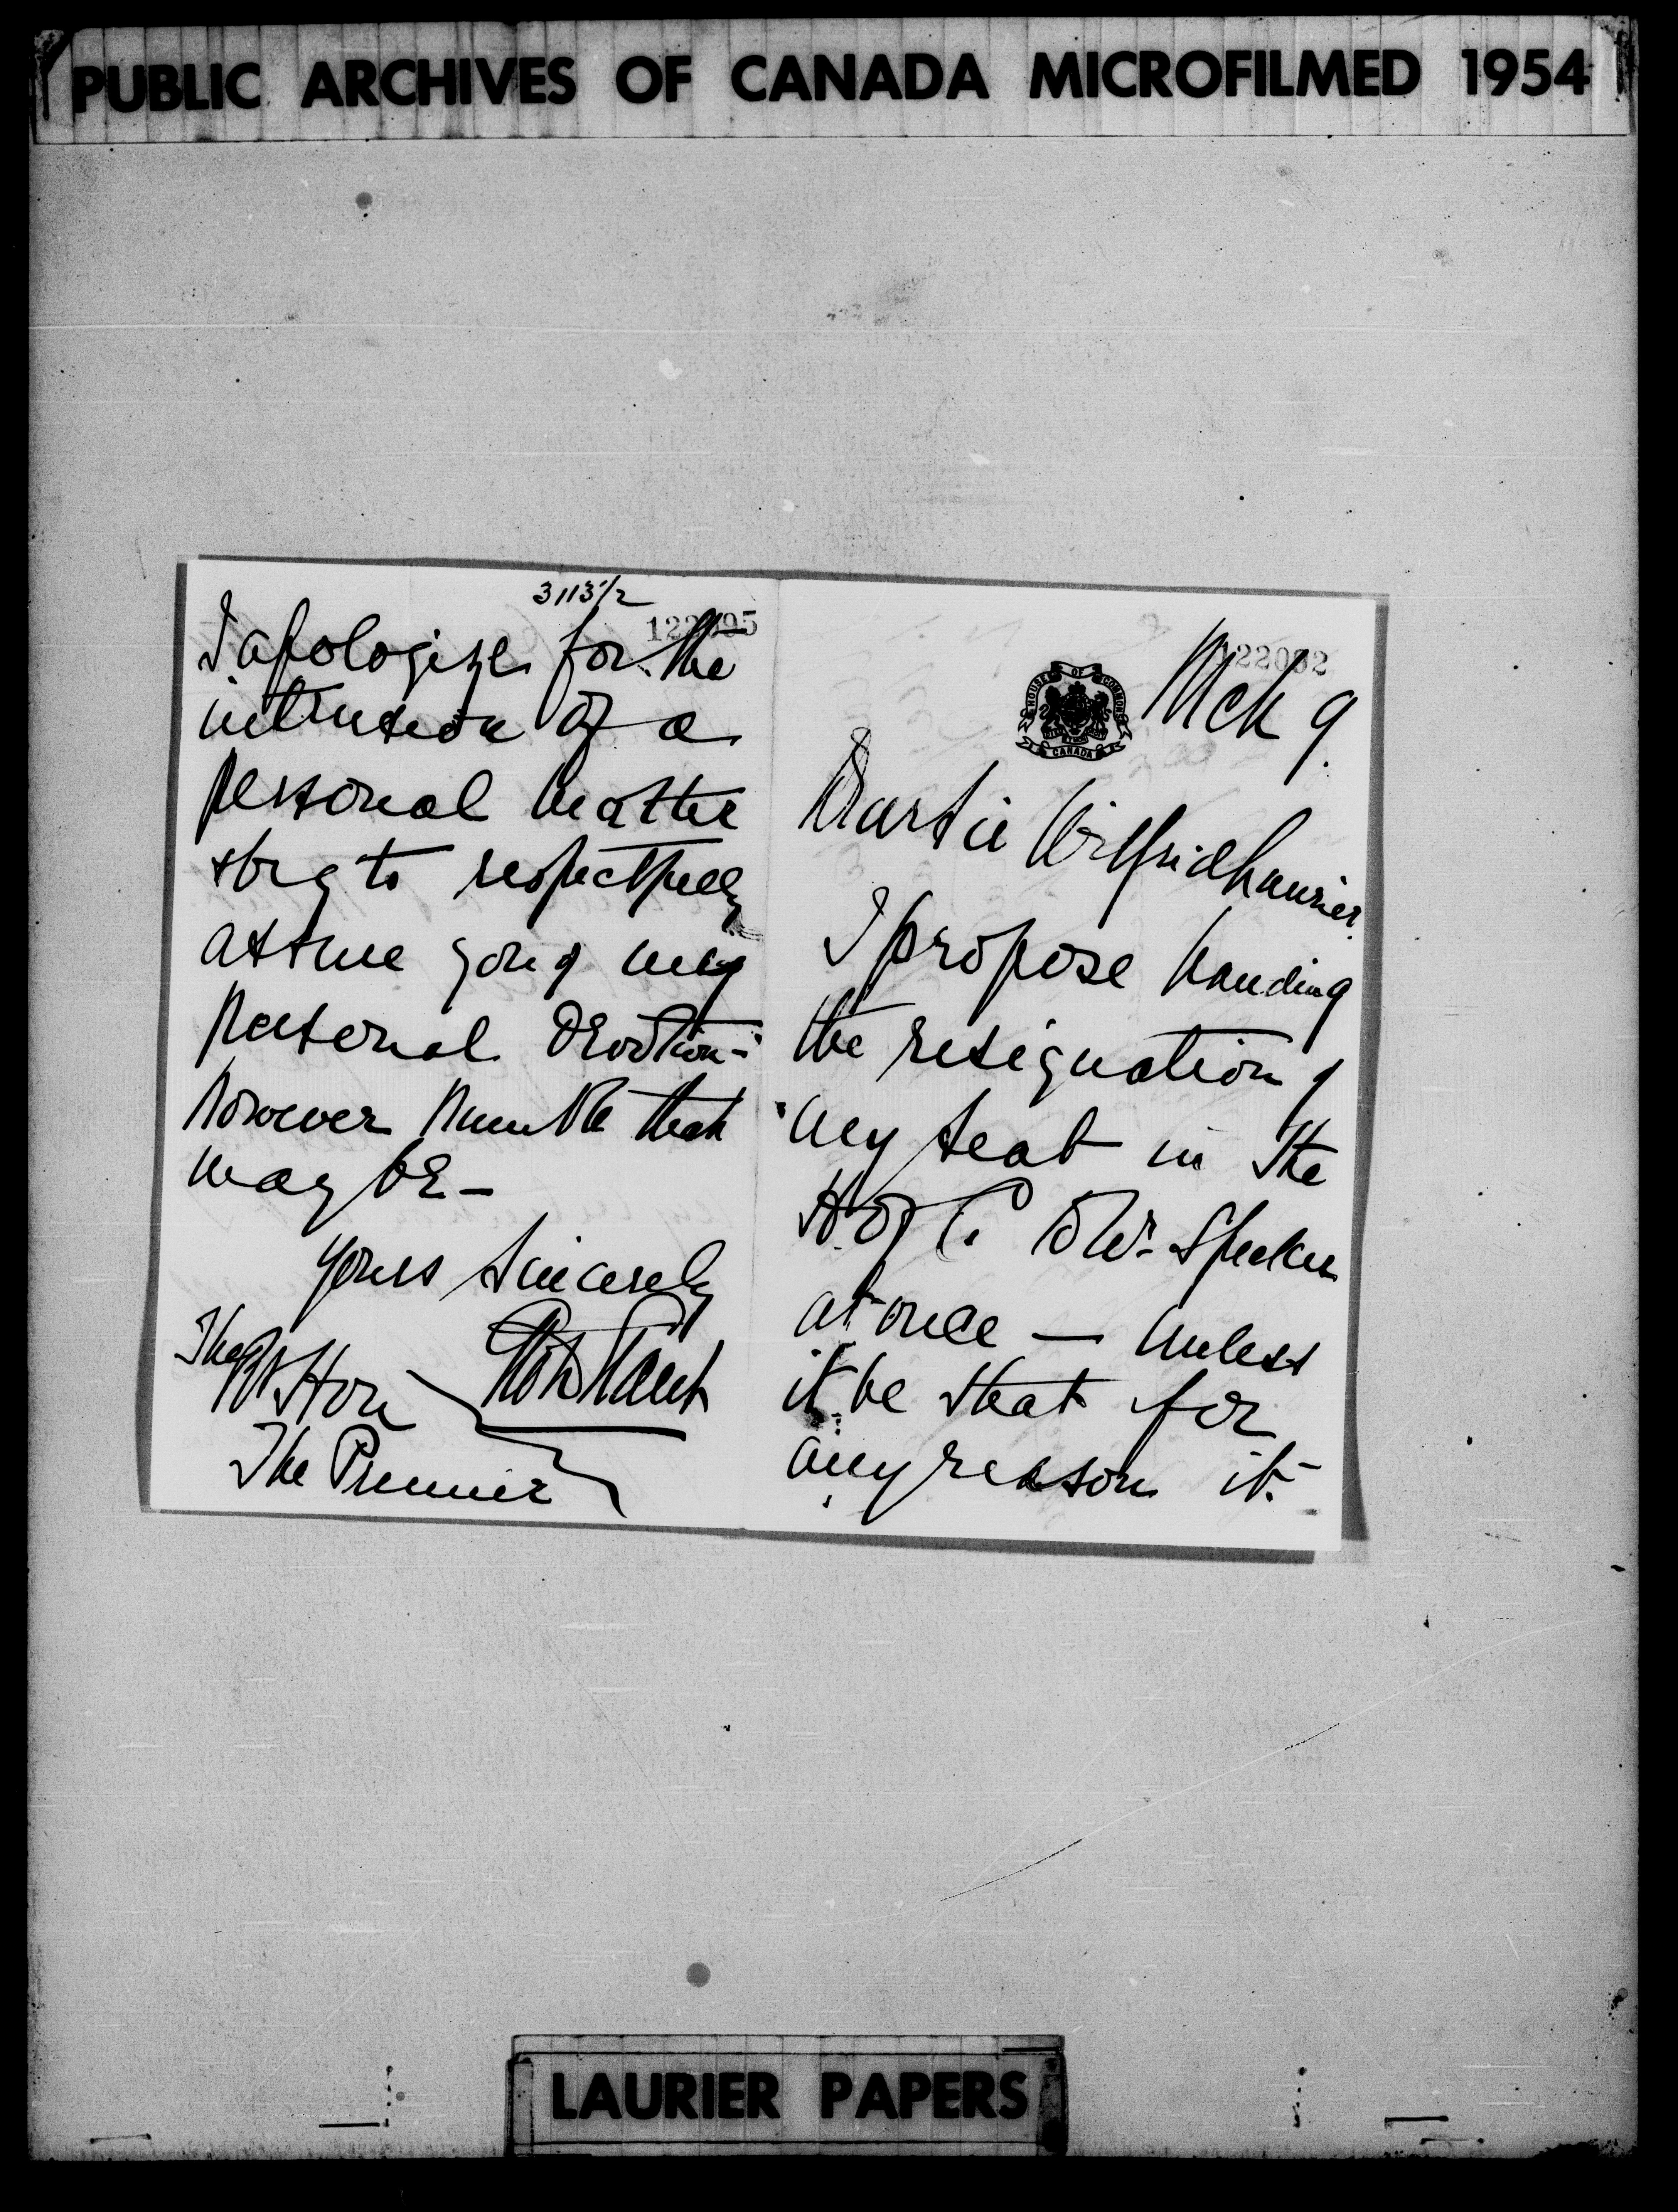 PUBLIC ARCHIVES OF CANADA MICROFILMED 1954
3113 1/2
I apologize for the
intrusion of a
personal matter
& beg to respectfully
assure you of my
personal devotion -
however humble that
may be -
Yours sincerely
The Rt Hon
The Premier
HOUSE OF COMMONS
CANADA
Mch 9.
Dear Sir Wilfrid Laurier.
I propose handing
the resignation of
my seat in the
H. of C. to Mr. Speaker
at once — unless
it be that for
any reason it
LAURIER PAPERS